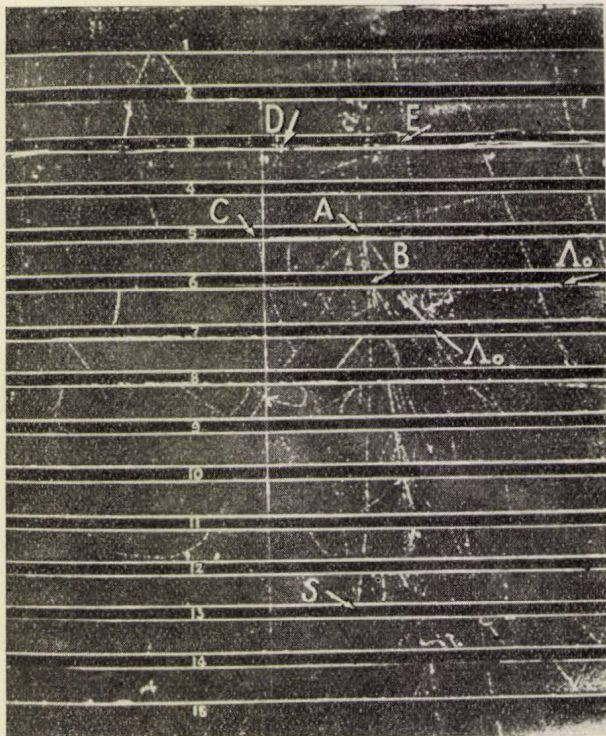 1
2
D E
3
4
C A
5
B Λ₀
6
7
Λ₀
8
9
10
11
12
S
13
14
15